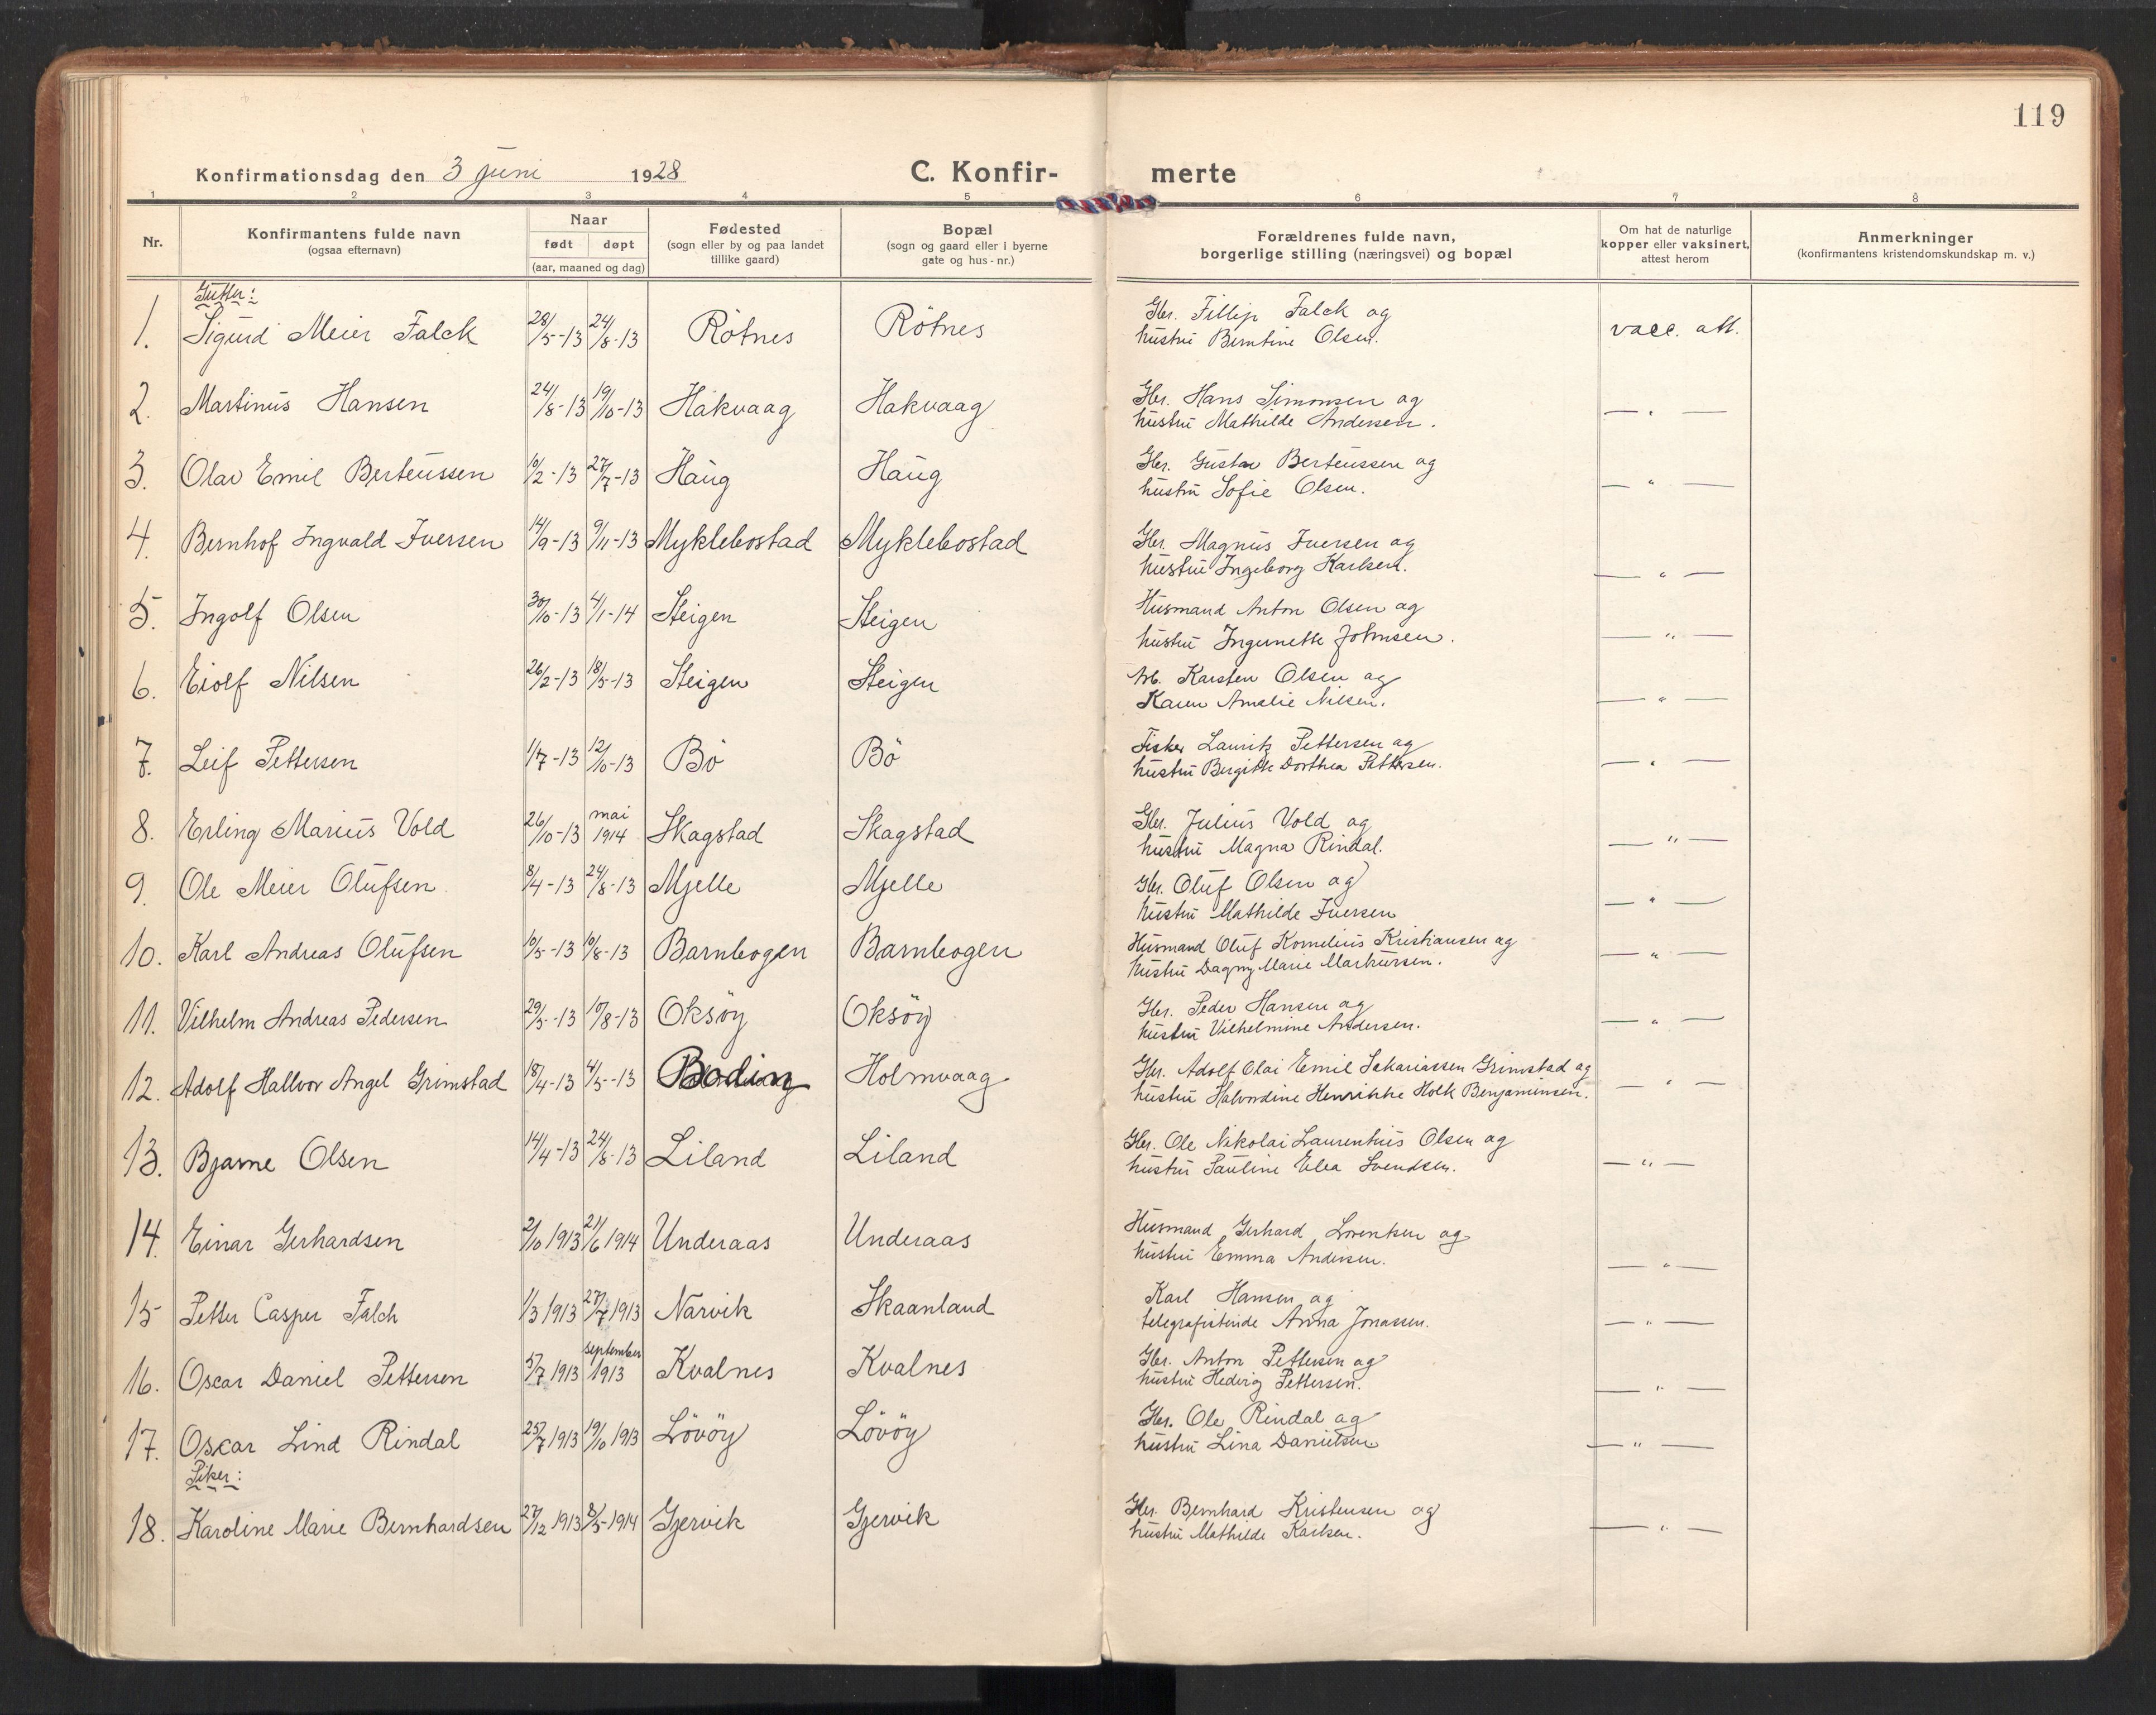 119
Konfirmationsdag den 3 juni 1928 C. Konfir- merte
1 2 3 4 5 6 7 8
Nr.
Konfirmantens fulde navn
(ogsaa efternavn)
Naar
født døpt
(aar, maaned og dag)
Fødested
(sogn eller by og paa landet
tillike gaard)
Bopæl
(sogn og gaard eller i byerne
gate og hus-nr.)
Forældrenes fulde navn,
borgerlige stilling (næringsvei) og bopæl
Om hat de naturlige
kopper eller vaksinert,
attest herom
Anmerkninger
(konfirmantens kristendomskundskap m. v.)
Gutter:
1. Sigurd Meier Falck 28/5-13 24/8-13 Rötnes Rötnes Gbr. Fillip Falck og
hustru Berntine Olsen. vacc. att.
2. Martinus Hansen 24/8-13 19/10-13 Hakvaag Hakvaag Gbr. Hans Simonsen og
hustru Mathilde Andersen. — " —
3. Olav Emil Berteussen 10/2-13 27/7-13 Haug Haug Gbr. Gustav Berteussen og
hustru Sofie Olsen. — " —
4. Bernhof Ingvald Iversen 14/9-13 9/11-13 Myklebostad Myklebostad Gbr. Magnus Iversen og
hustru Ingeborg Karlsen. — " —
5. Ingolf Olsen 30/10-13 4/1-14 Steigen Steigen Husmand Anton Olsen og
hustru Ingernette Johnsen. — " —
6. Eiolf Nilsen 26/2-13 18/5-13 Steigen Steigen Arb. Karsten Olsen og
Karen Amalie Nilsen. — " —
7. Leif Pettersen 1/7-13 12/10-13 Bö Bö Fisker Lauritz Pettersen og
hustru Bergitte Dorthea Pettersen. — " —
8. Erling Marius Vold 26/10-13 mai 1914 Skagstad Skagstad Gbr. Julius Vold og
hustru Magna Rindal. — " —
9. Ole Meier Olufsen 8/4-13 24/8-13 Mjelle Mjelle Gbr. Oluf Olsen og
hustru Mathilde Iversen — " —
10. Karl Andreas Olufsen 10/5-13 10/8-13 Barnbogen Barnbogen Husmand Oluf Kornelius Kristiansen og
hustru Dagny Marie Markussen. — " —
11. Vilhelm Andreas Pedersen 29/5-13 10/8-13 Oksöy Oksöy Gbr. Peder Hansen og
hustru Vilhelmine Andersen. — " —
12. Adolf Hallvor Angel Grimstad 18/4-13 4/5-13 Bodin Holmvaag Gbr. Adolf Olai Emil Sakariassen Grimstad og
hustru Halvordine Henrikke Holk Benjaminsen. — " —
13. Bjarne Olsen 14/4-13 24/8-13 Liland Liland Gbr. Ole Nikolai Laurentius Olsen og
hustru Pauline Elea Svendsen. — " —
14. Einar Gerhardsen 2/10 1913 21/6 1914 Underaas Underaas Husmand Gerhard Lorentsen og
hustru Emma Andersen. — " —
15 Petter Casper Falch 1/3 1913 27/7 1913 Narvik Skaanland Karl Hansen og
telegrafistinde Anna Jonassen. — " —
16. Oscar Daniel Pettersen 5/7 1913 september 1913 Kvalnes Kvalnes Gbr. Anton Pettersen og
hustru Hedvig Pettersen. — " —
17. Oscar Lind Rindal 25/7 1913 19/10 1913 Lövöy Lövöy Gbr. Ole Rindal og
hustru Lina Danielsen — " —
Piker:
18. Karoline Marie Bernhardsen 27/12 1913 8/5-1914 Gjervik Gjervik Gbr. Bernhard Kristensen og
hustru Mathilde Karlsen. — " —